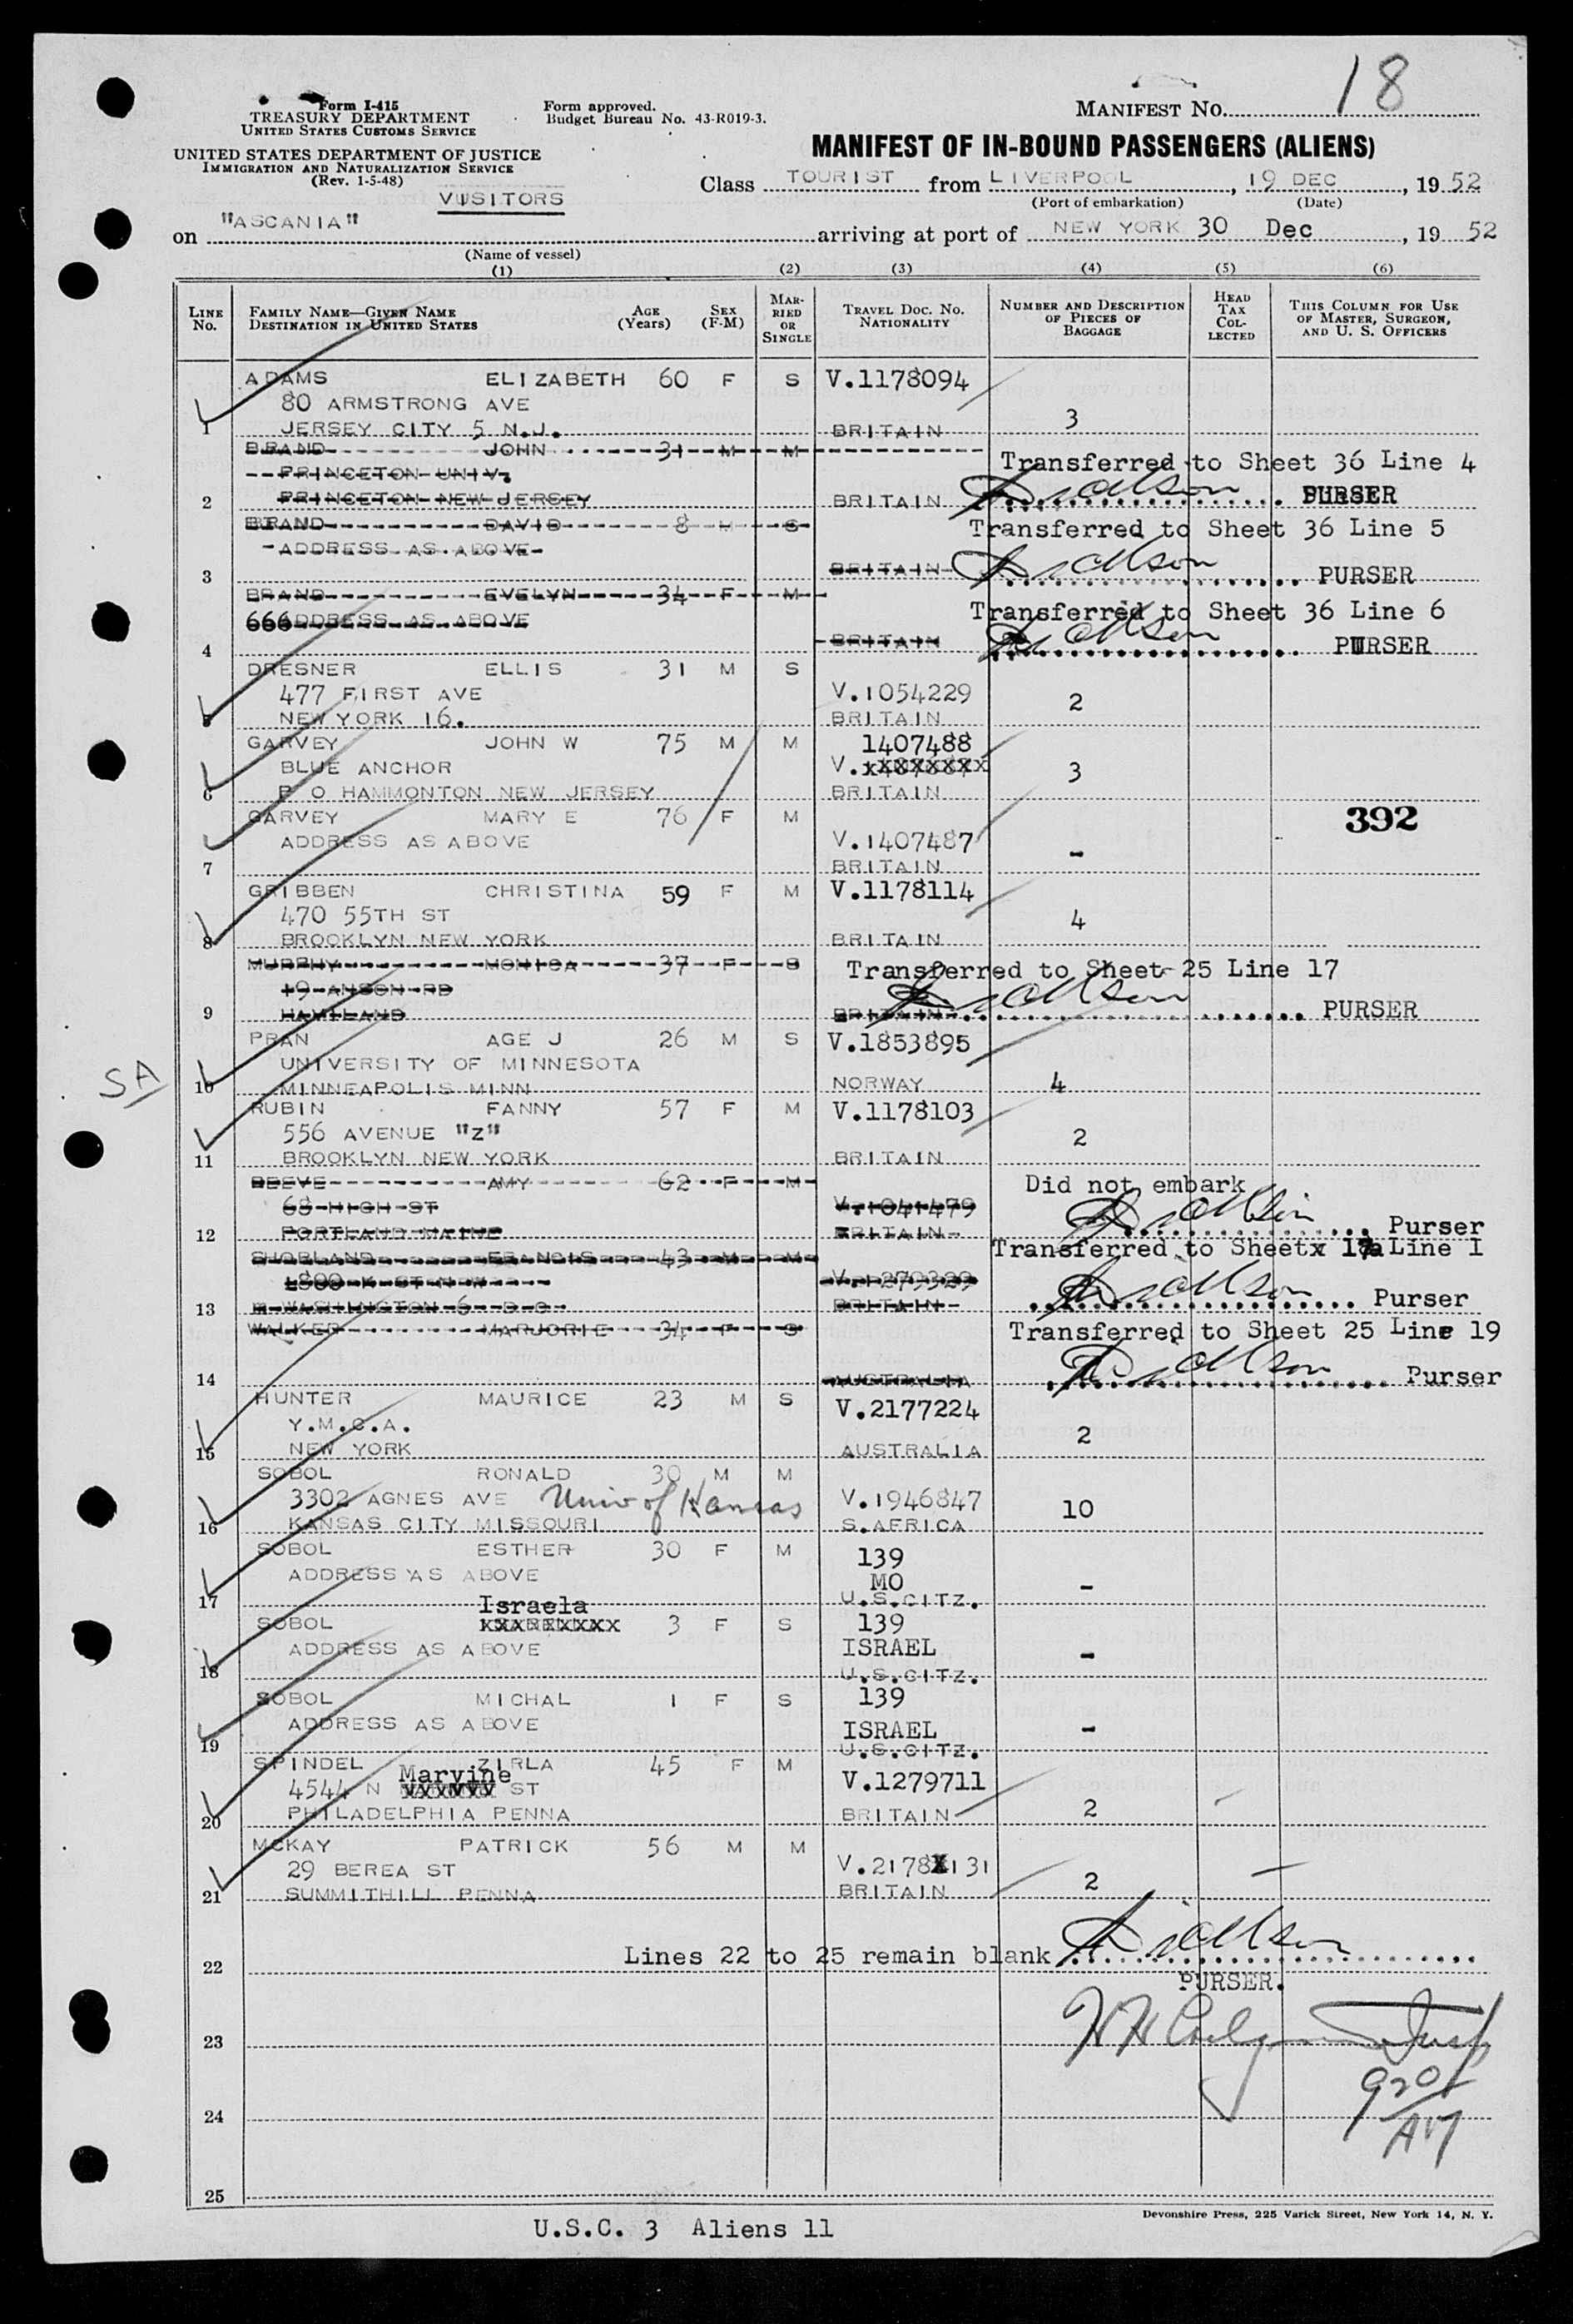 18
Form I-415
TREASURY DEPARTMENT
UNITED STATES CUSTOMS SERVICE
Form approved.
Budget Bureau No. 43-R019-3.
MANIFEST NO.
UNITED STATES DEPARTMENT OF JUSTICE
IMMIGRATION AND NATURALIZATION SERVICE
(Rev. 1-5-48)
MANIFEST OF IN-BOUND PASSENGERS (ALIENS)
VISITORS
Class TOURIST from LIVERPOOL, 19 DEC, 19 52
(Port of embarkation) (Date)
on "ASCANIA" arriving at port of NEW YORK 30 Dec, 19 52
(Name of vessel)
(1) (2) (3) (4) (5) (6)
LINE NO. FAMILY NAME—GIVEN NAME DESTINATION IN UNITED STATES AGE (Years) SEX (F-M) MARRIED OR SINGLE TRAVEL DOC. NO. NATIONALITY NUMBER AND DESCRIPTION OF PIECES OF BAGGAGE HEAD TAX COLLECTED THIS COLUMN FOR USE OF MASTER, SURGEON, AND U. S. OFFICERS
ADAMS ELIZABETH 60 F S V.1178094
80 ARMSTRONG AVE 3
1 JERSEY CITY 5 N.J. BRITAIN
BRAND JOHN 31 M M
Transferred to Sheet 36 Line 4
PRINCETON UNIV.
2 PRINCETON NEW JERSEY BRITAIN PURSER
BRAND DAVID 8 M S Transferred to Sheet 36 Line 5
ADDRESS AS ABOVE
3 BRITAIN PURSER
BRAND EVELYN 34 F M
Transferred to Sheet 36 Line 6
666DDRESS AS ABOVE
4 BRITAIN PURSER
DRESNER ELLIS 31 M S
477 FIRST AVE V.1054229 2
5 NEW YORK 16. BRITAIN
GARVEY JOHN W 75 M M 1407488
BLUE ANCHOR V.xxxxxxxx 3
6 P O HAMMONTON NEW JERSEY BRITAIN
GARVEY MARY E 76 F M 392
ADDRESS AS ABOVE V.1407487 -
7 BRITAIN
GRIBBEN CHRISTINA 59 F M V.1178114
470 55TH ST 4
8 BROOKLYN NEW YORK BRITAIN
MURPHY MONICA 37 F S Transferred to Sheet 25 Line 17
19 ANSON RD
9 BRITAIN PURSER
PRAN AGE J 26 M S V.1853895
UNIVERSITY OF MINNESOTA
SA
10 MINNEAPOLIS MINN NORWAY 4
RUBIN FANNY 57 F M V.1178103
556 AVENUE "Z" 2
11 BROOKLYN NEW YORK BRITAIN
REEVE AMY 62 F M Did not embark
68 HIGH ST V.1041479
12 PORTLAND MAINE BRITAIN Purser
SHORLAND FRANCIS 43 M M Transferred to Sheetx 17a Line 1
1800 K ST N W V.1279329
13 WASHINGTON 6 D C BRITAIN Purser
WALKER MARJORIE 34 F S Transferred to Sheet 25 Line 19
14 AUSTRALIA Purser
HUNTER MAURICE 23 M S V.2177224
Y.M.C.A. 2
15 NEW YORK AUSTRALIA
SOBOL RONALD 30 M M
3302 AGNES AVE Univ of Kansas V.1946847 10
16 KANSAS CITY MISSOURI S.AFRICA
SOBOL ESTHER 30 F M 139
ADDRESS AS ABOVE MO -
17 U.S.CITZ.
Israela
SOBOL 3 F S 139
ADDRESS AS ABOVE ISRAEL -
18 U.S.CITZ.
SOBOL MICHAL 1 F S 139
ADDRESS AS ABOVE ISRAEL -
19 U.S.CITZ.
SPINDEL ZIRLA 45 F M
Marvine
4544 N ST V.1279711
20 PHILADELPHIA PENNA BRITAIN 2
MCKAY PATRICK 56 M M
29 BEREA ST V.2178131 2
21 SUMMITHILL PENNA BRITAIN
Lines 22 to 25 remain blank
22
PURSER.
23
920
24
AM
25
Devonshire Press, 225 Varick Street, New York 14, N. Y.
U.S.C. 3 Aliens 11